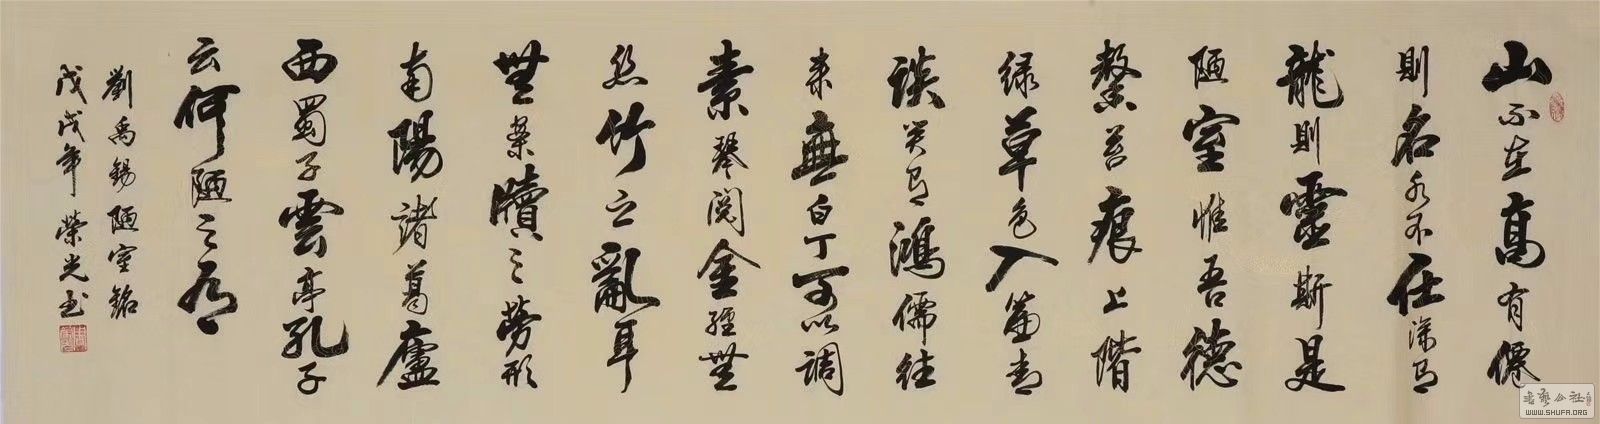 山不在高有僊
則名水不在深有
龍則靈斯是
陋室惟吾德
馨苔痕上階
緑草色入簾青
談笑有鴻儒往
来無白丁可以調
素琴閲金經無
丝竹之亂耳
無案牘之勞形
南陽諸葛廬
西蜀子雲亭孔子
云何陋之有
劉禹錫陋室銘
戊戌年榮光书
书艺公社
WWW.SHUFA.ORG